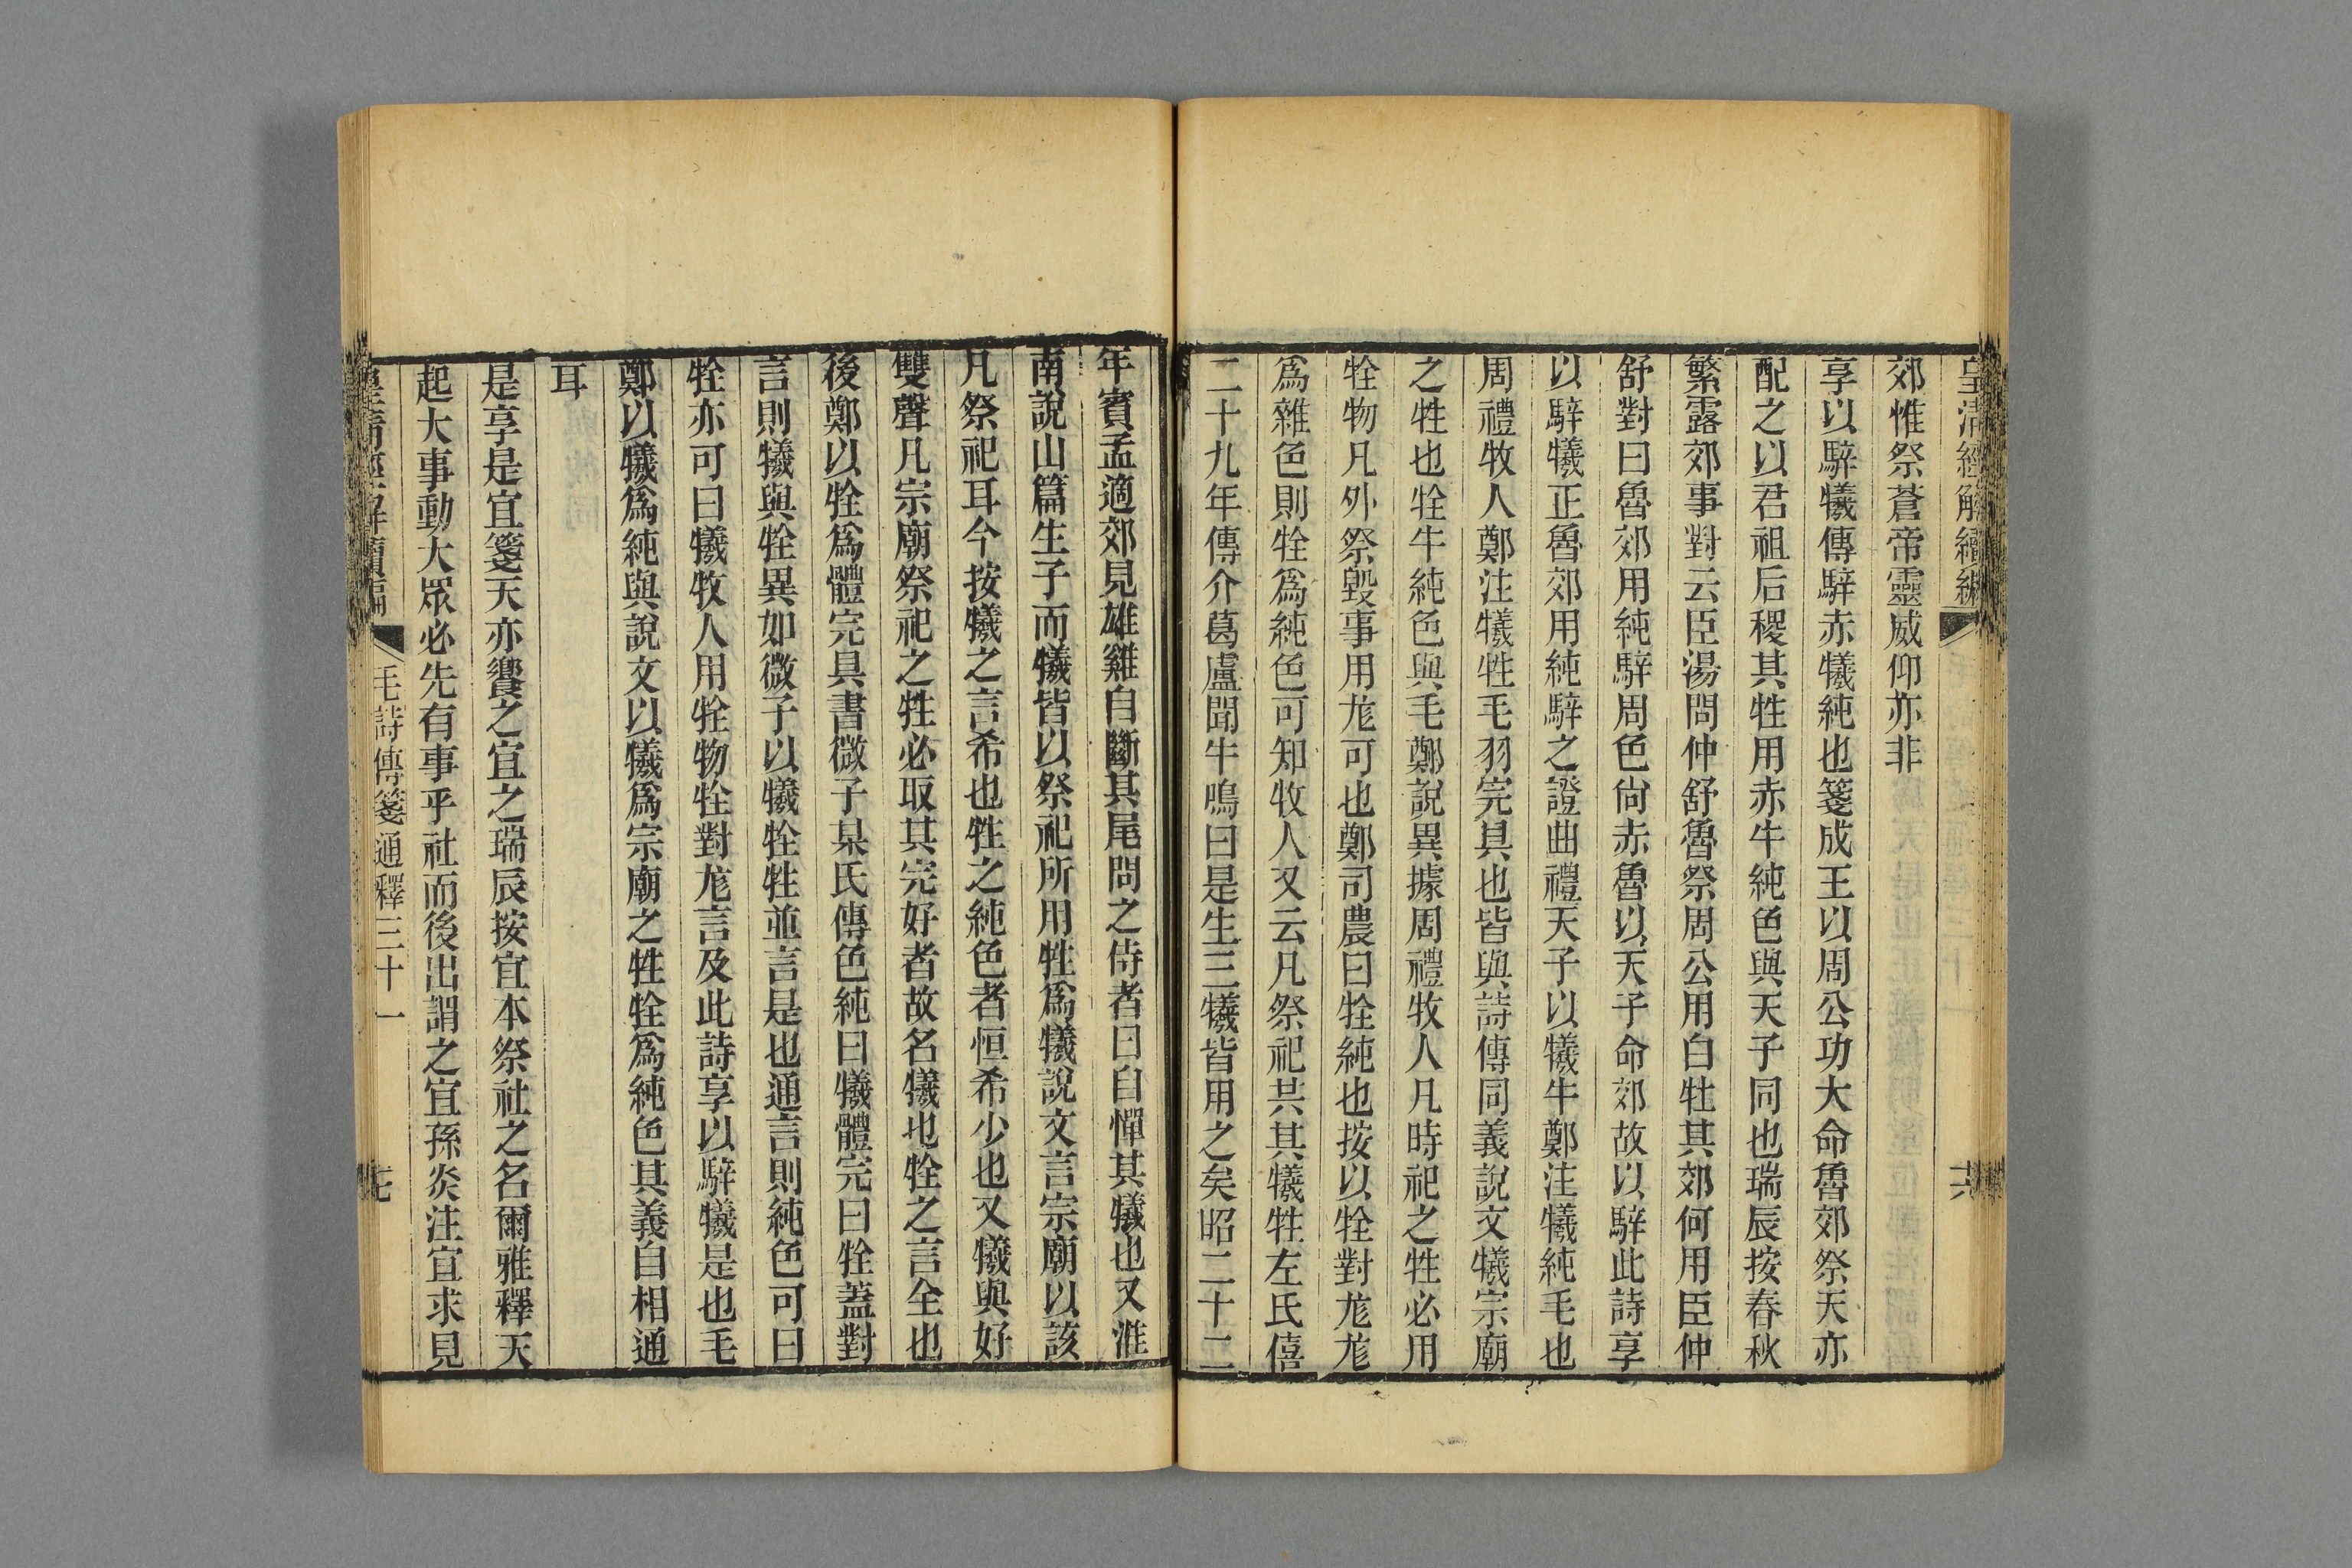 皇清經解續編
十六
郊惟祭蒼帝靈威仰亦非
享以騂犧傳騂赤犧純也箋成王以周公功大命魯郊祭天亦
配之以君祖后稷其牲用赤牛純色與天子同也瑞辰按春秋
繁露郊事對云臣湯問仲舒魯祭周公用白牡其郊何用臣仲
舒對曰魯郊用純騂周色尙赤魯以天子命郊故以騂此詩享
以騂犧正魯郊用純騂之證曲禮天子以犧牛鄭注犧純毛也
周禮牧人鄭注犧牲毛羽完具也皆與詩傳同義說文犧宗廟
之牲也牷牛純色與毛鄭說異據周禮牧人凡時祀之牲必用
牷物凡外祭毀事用尨可也鄭司農曰牷純也按以牷對尨尨
爲雜色則牷爲純色可知牧人又云凡祭祀共其犧牲左氏僖
二十九年傳介葛盧聞牛鳴曰是生三犧皆用之矣昭二十二
年賓孟適郊見雄雞自斷其尾問之侍者曰自憚其犧也又淮
南說山篇生子而犧皆以祭祀所用牲爲犧說文言宗廟以該
凡祭祀耳今按犧之言希也牲之純色者恒希少也又犧與好
雙聲凡宗廟祭祀之牲必取其完好者故名犧也牷之言全也
後鄭以牷爲體完具書微子某氏傳色純曰犧體完曰牷蓋對
言則犧與牷異如微子以犧牷牲並言是也通言則純色可曰
牷亦可曰犧牧人用牷物牷對尨言及此詩享以騂犧是也毛
鄭以犧爲純與說文以犧爲宗廟之牲牷爲純色其義自相通
耳
是享是宜箋天亦饗之宜之瑞辰按宜本祭社之名爾雅釋天
起大事動大眾必先有事乎社而後出謂之宜孫炎注宜求見
皇清經解續編
毛詩傳箋通釋三十一
十七